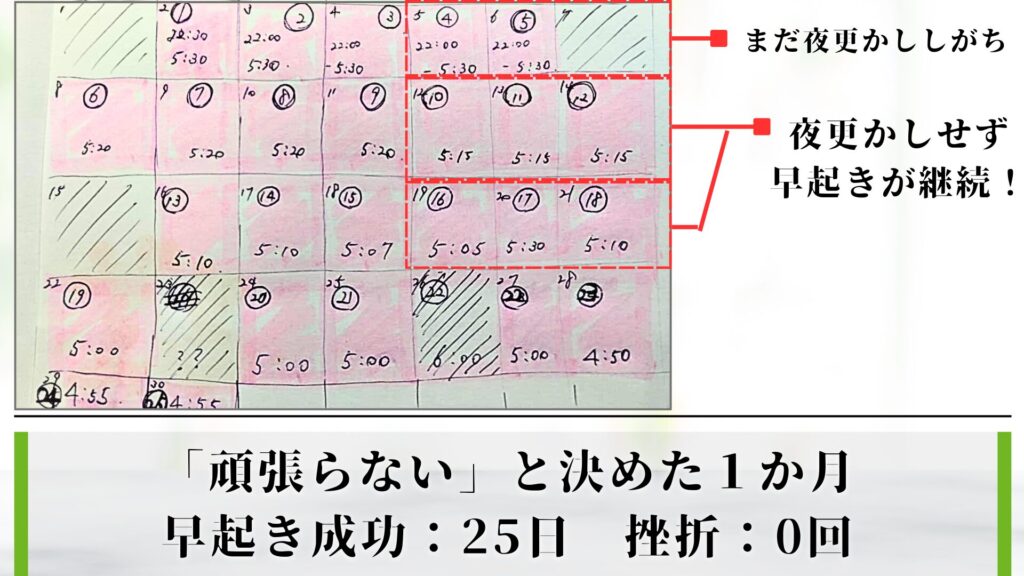 1 2 ① 3 ② 4 ③ 5 ④ 6 ⑤ 7
22:30 22:00 22:00 22:00 22:00
5:30 5:30 -5:30 -5:30 -5:30
まだ夜更かししがち
8 ⑥ 9 ⑦ 10 ⑧ 11 ⑨ 12 ⑩ 13 ⑪ 14 ⑫
5:20 5:20 5:20 5:20 5:15 5:15 5:15
夜更かしせず
早起きが継続!
15 16 ⑬ 17 ⑭ 18 ⑮ 19 ⑯ 20 ⑰ 21 ⑱
5:10 5:10 5:07 5:05 5:30 5:10
22 ⑲ 23 24 ⑳ 25 ㉑ 26 ㉒ 27 28
5:00 ?? 5:00 5:00 6:00 5:00 4:50
29 ㉔ 4:55 30 4:55
「頑張らない」と決めた1か月
早起き成功:25日 挫折:0回